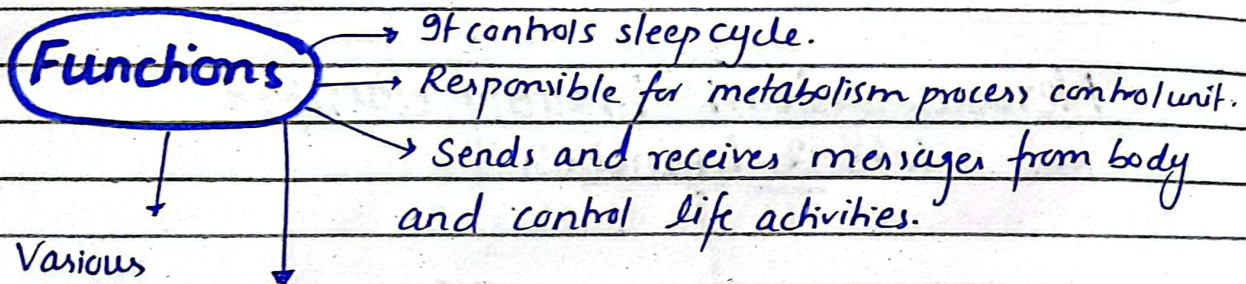 Functions
It controls sleep cycle.
Responsible for metabolism process control unit.
Sends and receives messages from body
and control life activities.
Various